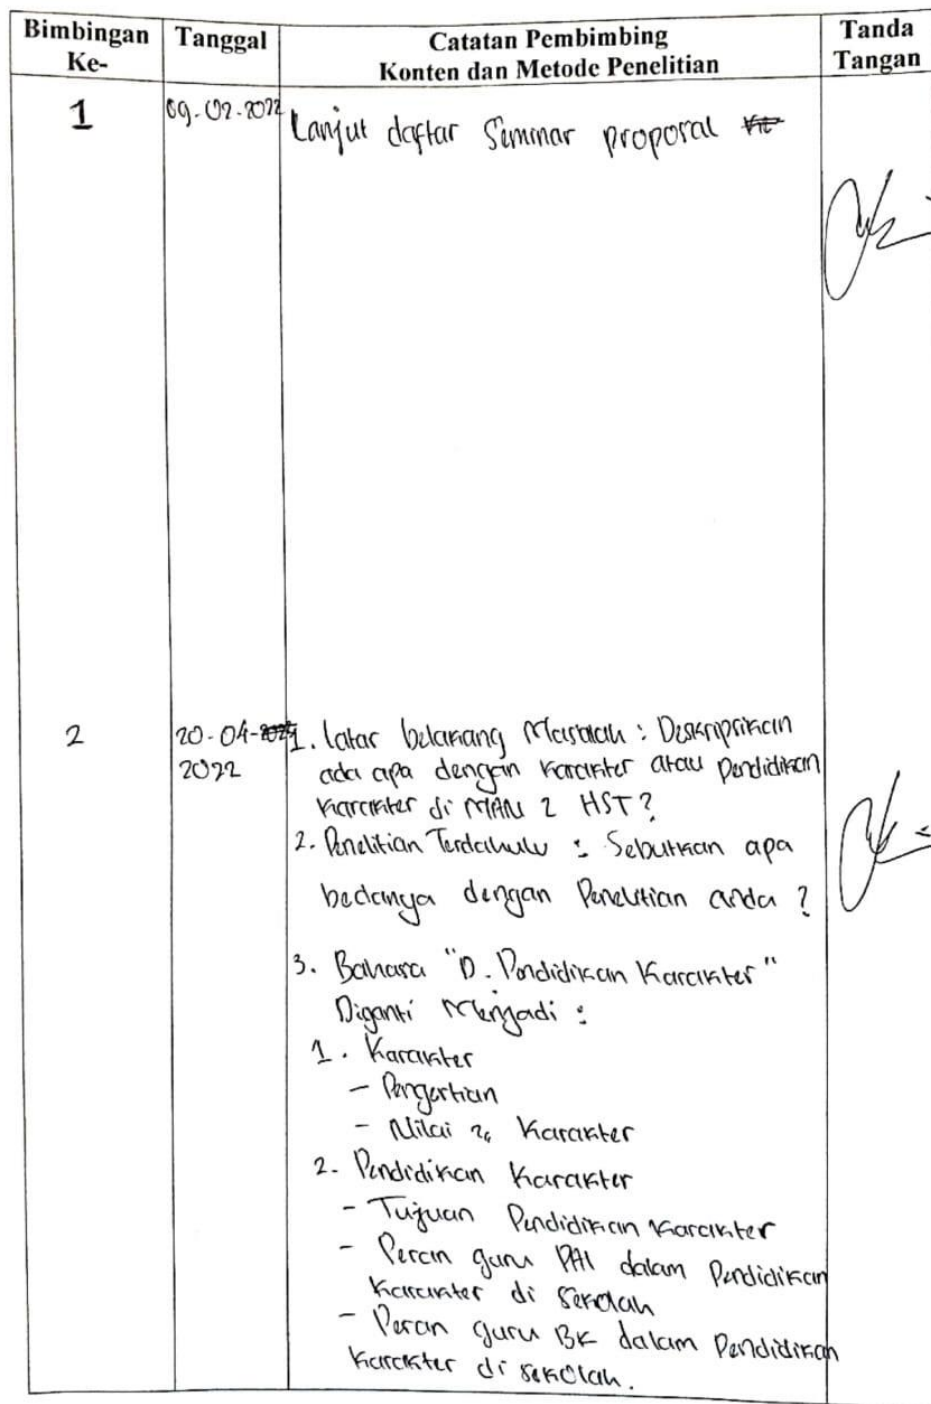 Bimbingan Ke-
Tanggal
Catatan Pembimbing
Konten dan Metode Penelitian
Tanda Tangan
1
09-02-2022
Lanjut daftar Seminar proposal
2
20-04-
2022
1. latar belakang Masalah : Deskripsikan
ada apa dengan karakter atau pendidikan
karakter di MAN 2 HST ?
2. Penelitian Terdahulu : Sebutkan apa
bedanya dengan Penelitian anda ?
3. Bahasa "D. Pendidikan Karakter"
Diganti Menjadi :
1. Karakter
- Pengertian
- Nilai 2 Karakter
2. Pendidikan Karakter
- Tujuan Pendidikan Karakter
- Peran guru PAI dalam Pendidikan
Karakter di Sekolah
- Peran guru BK dalam Pendidikan
Karakter di sekolah.